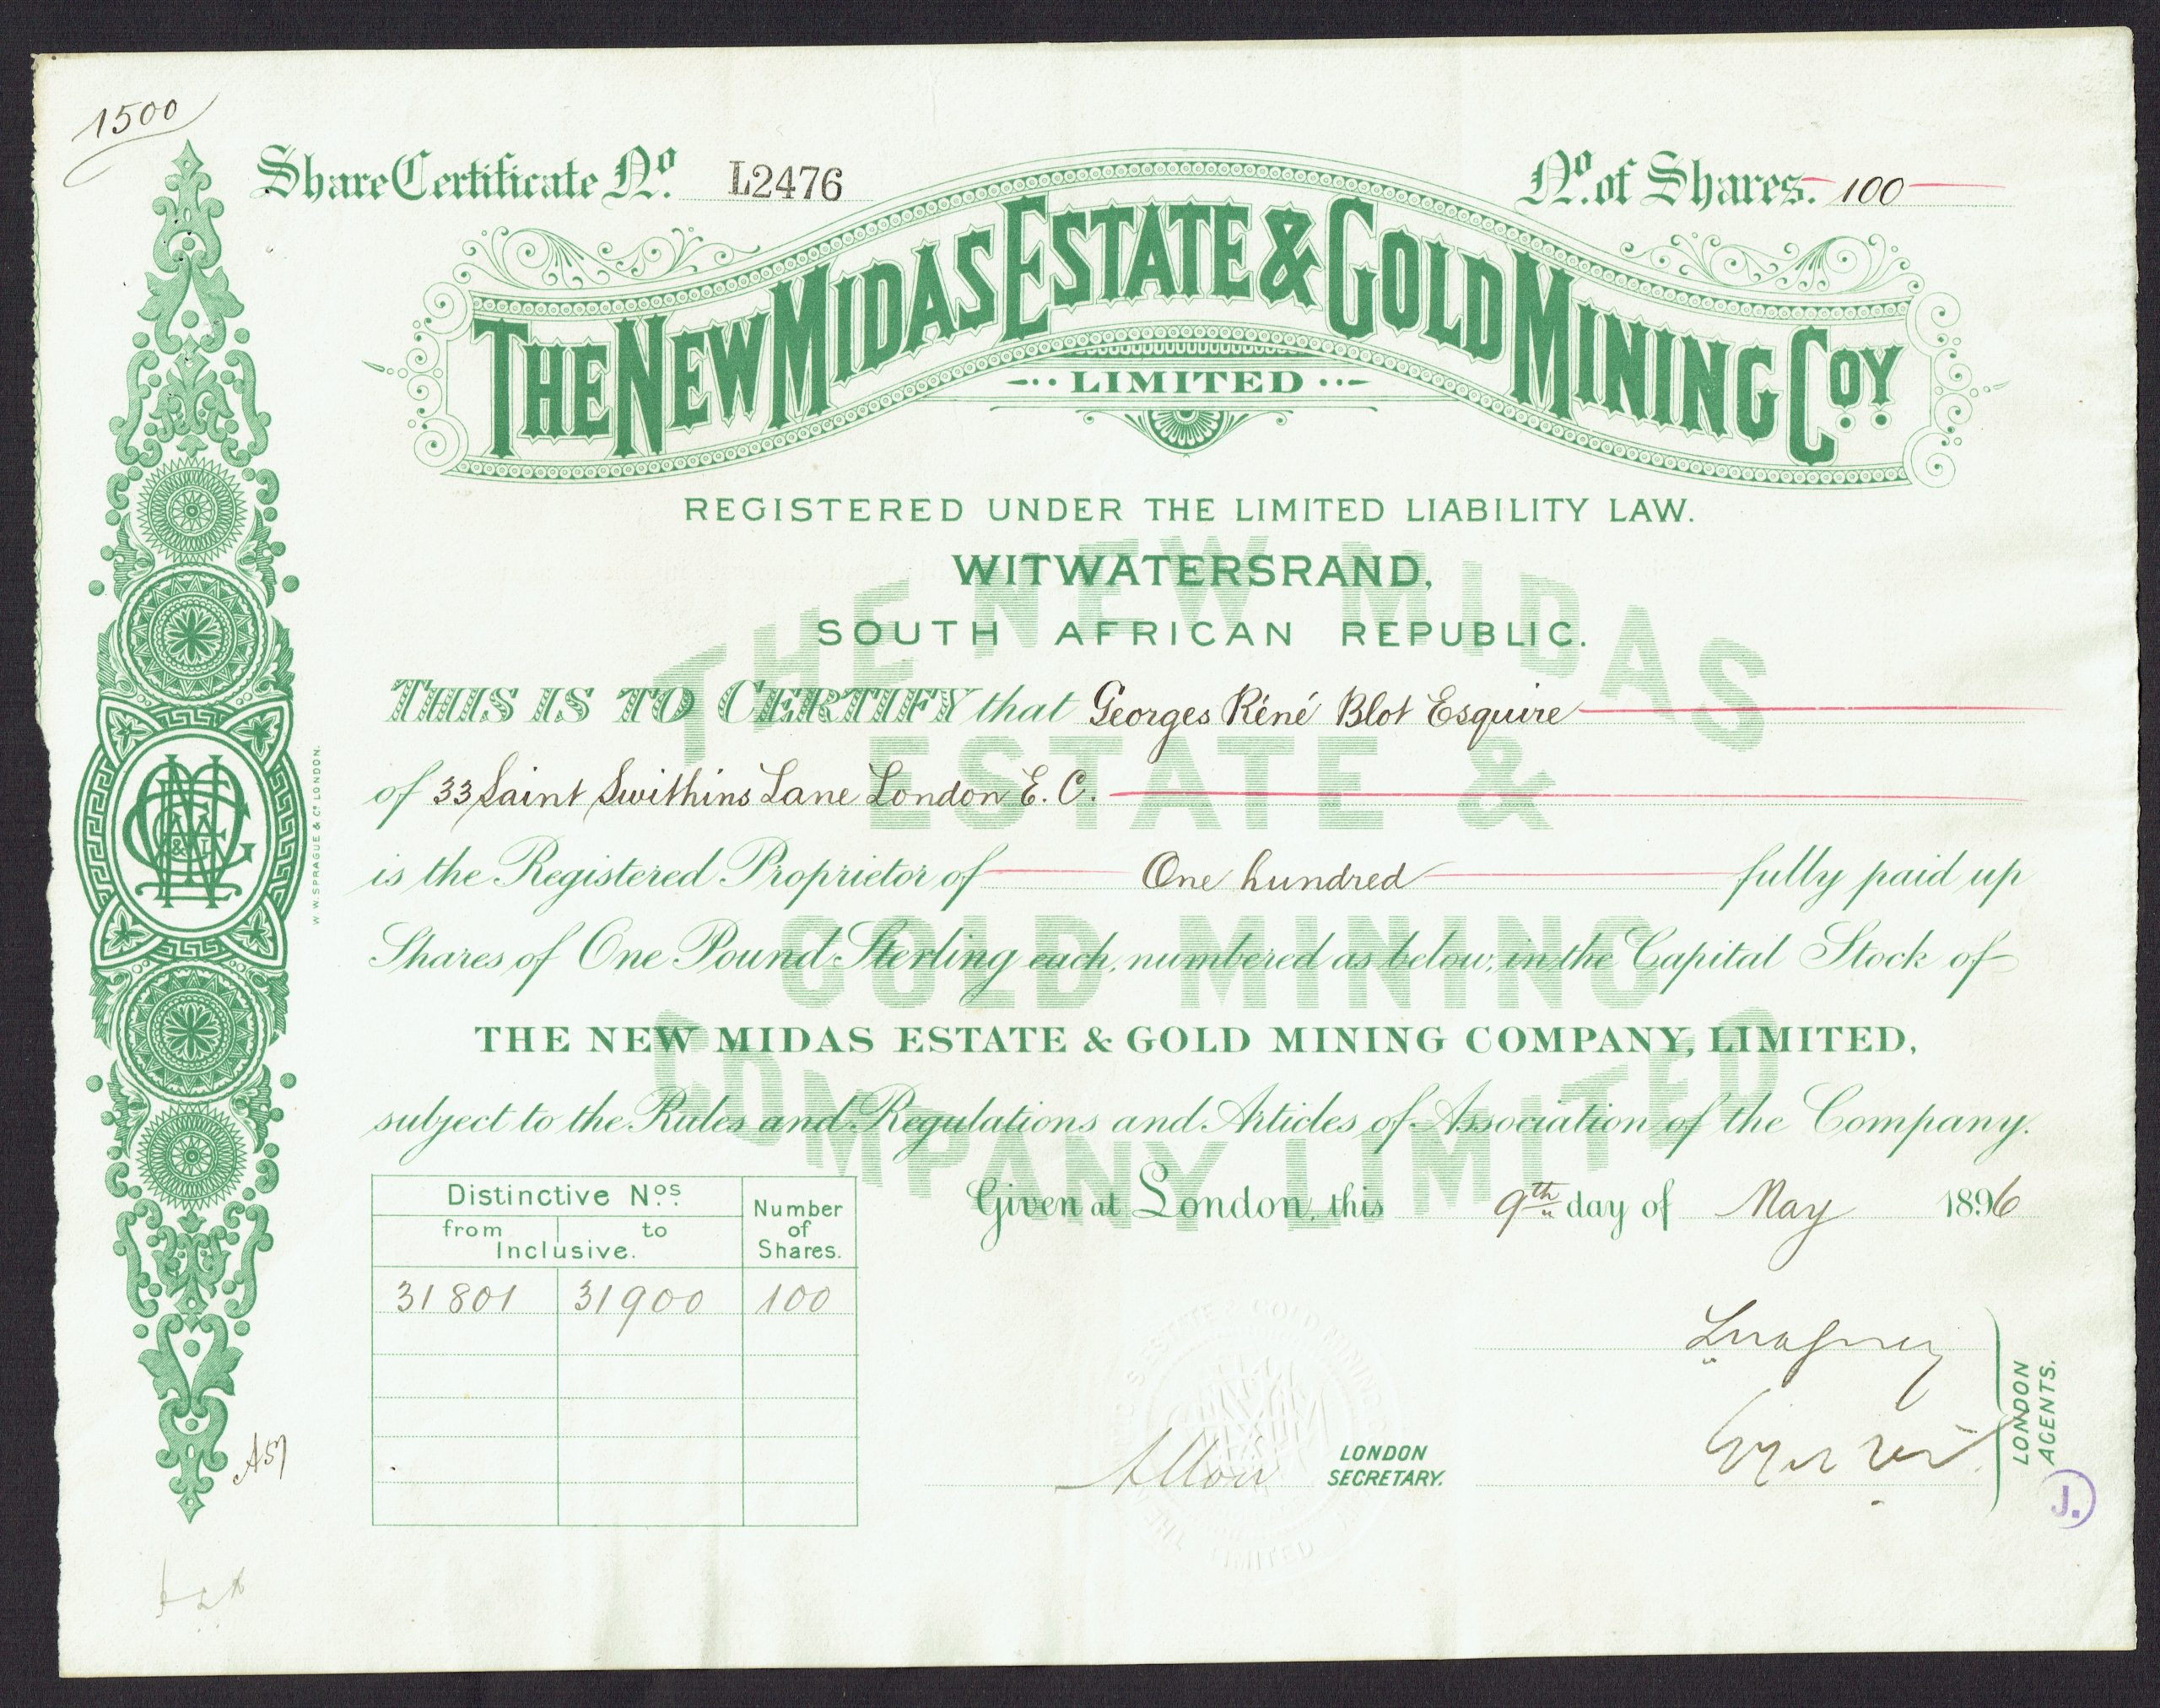 1500
Share Certificate No. L2476
No. of Shares. 100
THE NEW MIDAS ESTATE & GOLD MINING COY
LIMITED
REGISTERED UNDER THE LIMITED LIABILITY LAW.
WITWATERSRAND,
SOUTH AFRICAN REPUBLIC.
THIS IS TO CERTIFY that Georges Réné Blot Esquire
of 33 Saint Swithins Lane London E. C.
is the Registered Proprietor of One hundred fully paid up
Shares of One Pound Sterling each, numbered as below, in the Capital Stock of
THE NEW MIDAS ESTATE & GOLD MINING COMPANY, LIMITED,
subject to the Rules and Regulations and Articles of Association of the Company.
Given at London, this 9th day of May 1896
Distinctive Nos. Number of Shares.
from to
Inclusive.
31801 31900 100
LONDON SECRETARY.
LONDON AGENTS.
J.
W. W. SPRAGUE & Co. LONDON.
THE NEW MIDAS
ESTATE &
GOLD MINING
COMPANY LIMITED